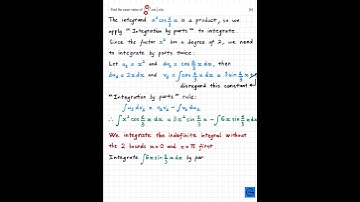 Find the exact value of
The integrand x² cos x/3 is a product, so we
apply "Integration by parts" to integrate.
Since the factor x² has a degree of 2, we need
to integrate by parts twice.
Let u₁ = x² and dv₁ = cos x/3 dx, then
du₁ = 2x dx and v₁ = ∫cos x/3 dx = 3 sin x/3
disregard this constant
"Integration by parts" rule:
∫u₁dv₁ = u₁v₁ - ∫v₁du₁
∴ ∫x² cos x/3 dx = 3x² sin x/3 - ∫6x sin x/3 dx
We integrate the indefinite integral without
the 2 bounds x=0 and x=π first.
Integrate ∫6x sin x/3 dx by par